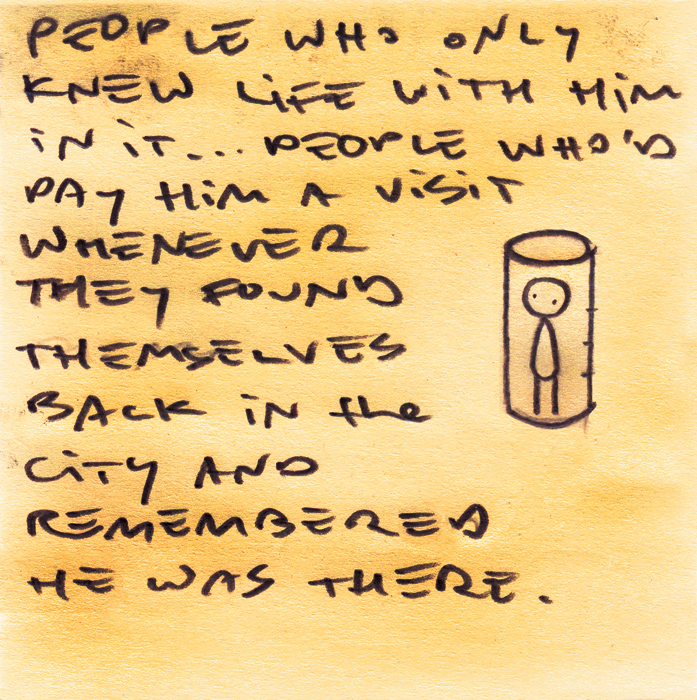 PEOPLE WHO ONLY
KNEW LIFE WITH HIM
IN IT... PEOPLE WHO'D
PAY HIM A VISIT
WHENEVER
THEY FOUND
THEMSELVES
BACK IN the
CITY AND
REMEMBERED
HE WAS THERE.